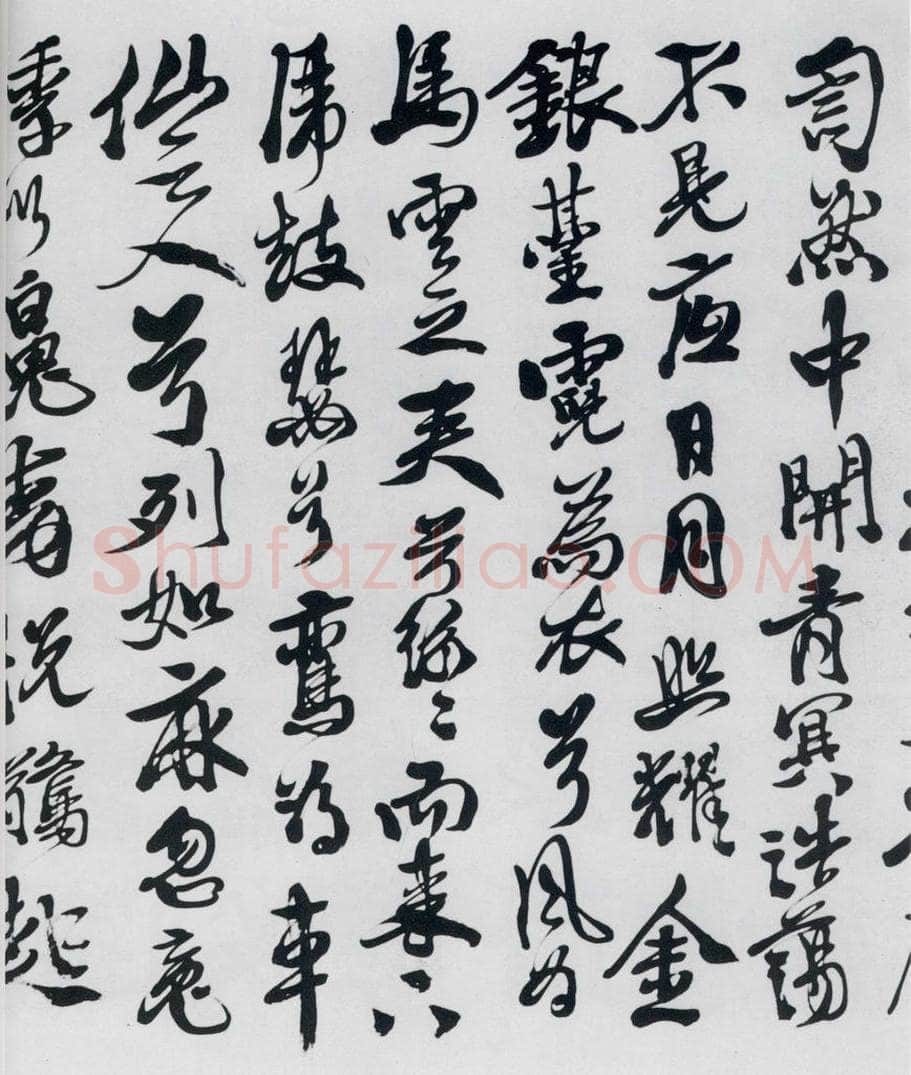 訇然中開青冥浩蕩
不見底日月照耀金
銀臺霓為衣兮風為
馬雲之君兮紛〻而來下
虎鼓瑟兮鸞車
仙之人兮列如麻忽魂
悸以魄動怳驚起
Shufaziliao.COM